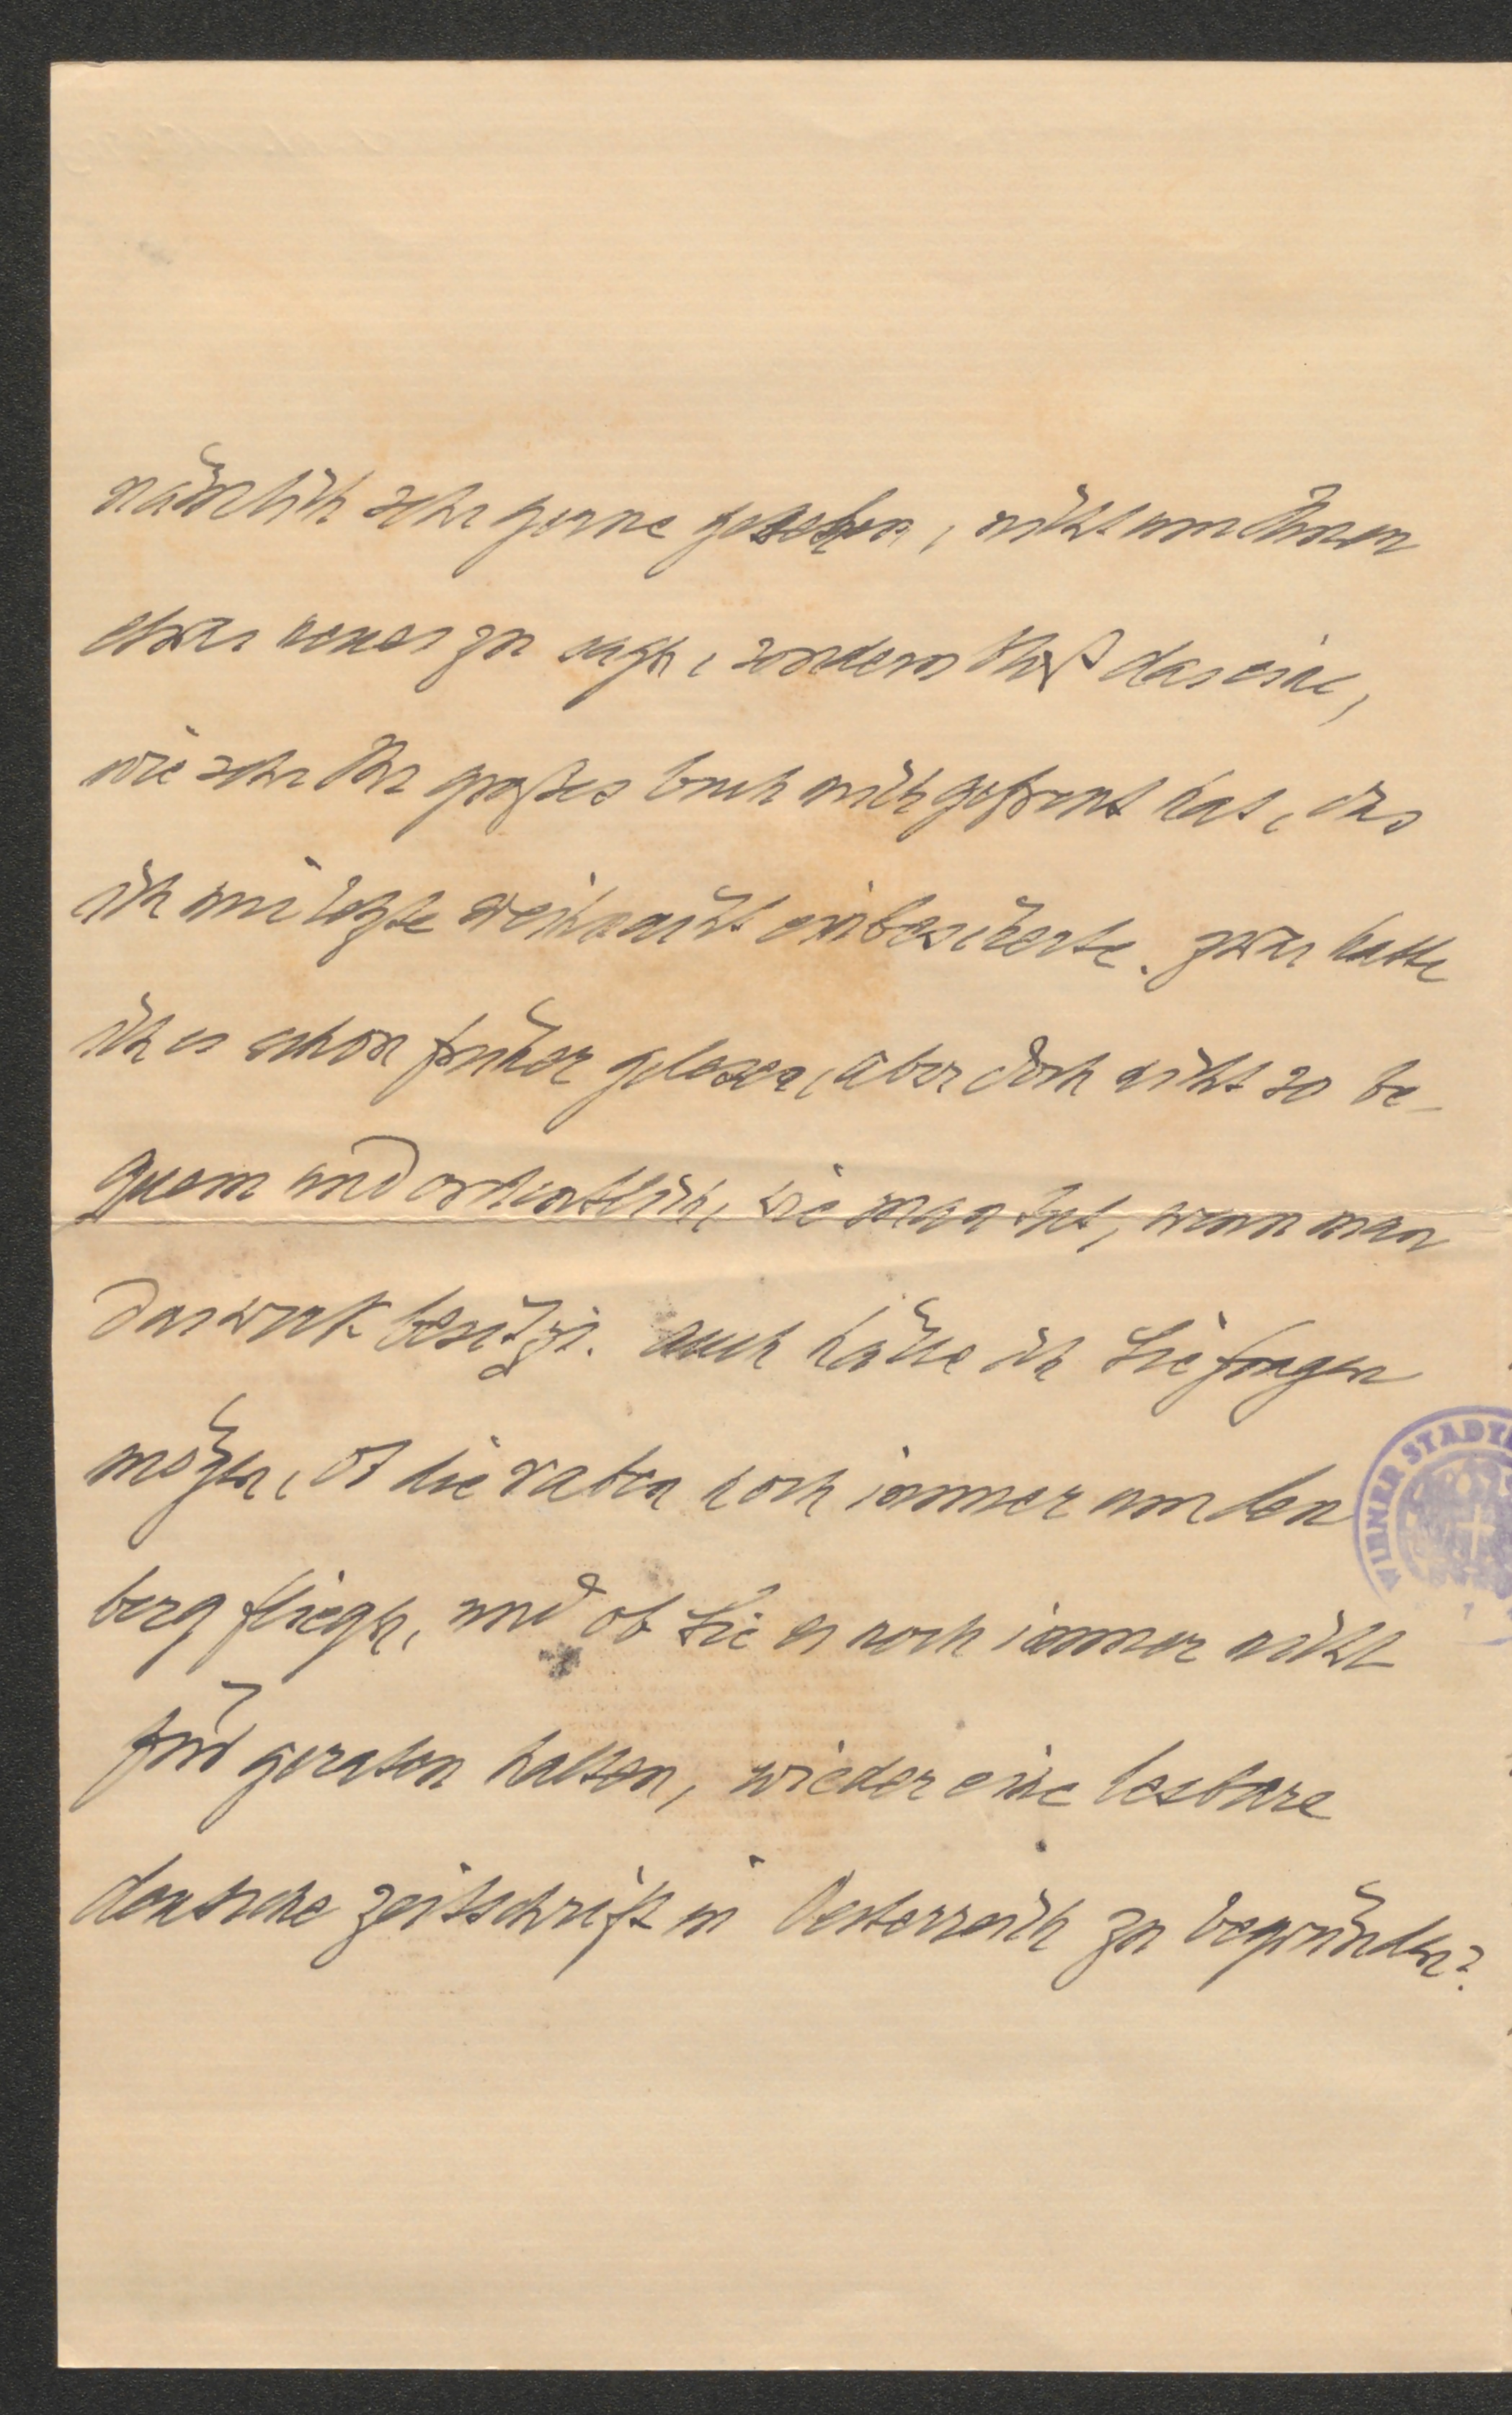 nämlich sehr gerne gesehen, nicht um Ihnen
etwas neues zu sagen, sondern bloß das eine,
wie sehr Ihr großes buch mich gefreut hat, das
ich mir letzte weihnacht einbescherte. zwar hatte
ich es schon früher gelesen, aber doch nicht so be-
quem und ordentlich, wie man tut, wenn man
das werk besitzt. auch hätte ich Sie fragen
mögen, ob die raben noch immer um den
berg fliegen, und ob Sie es noch immer nicht
für geraten halten, wieder eine lesbare
deutsche zeitschrift in Oesterreich zu begründen?
WIENER STADT